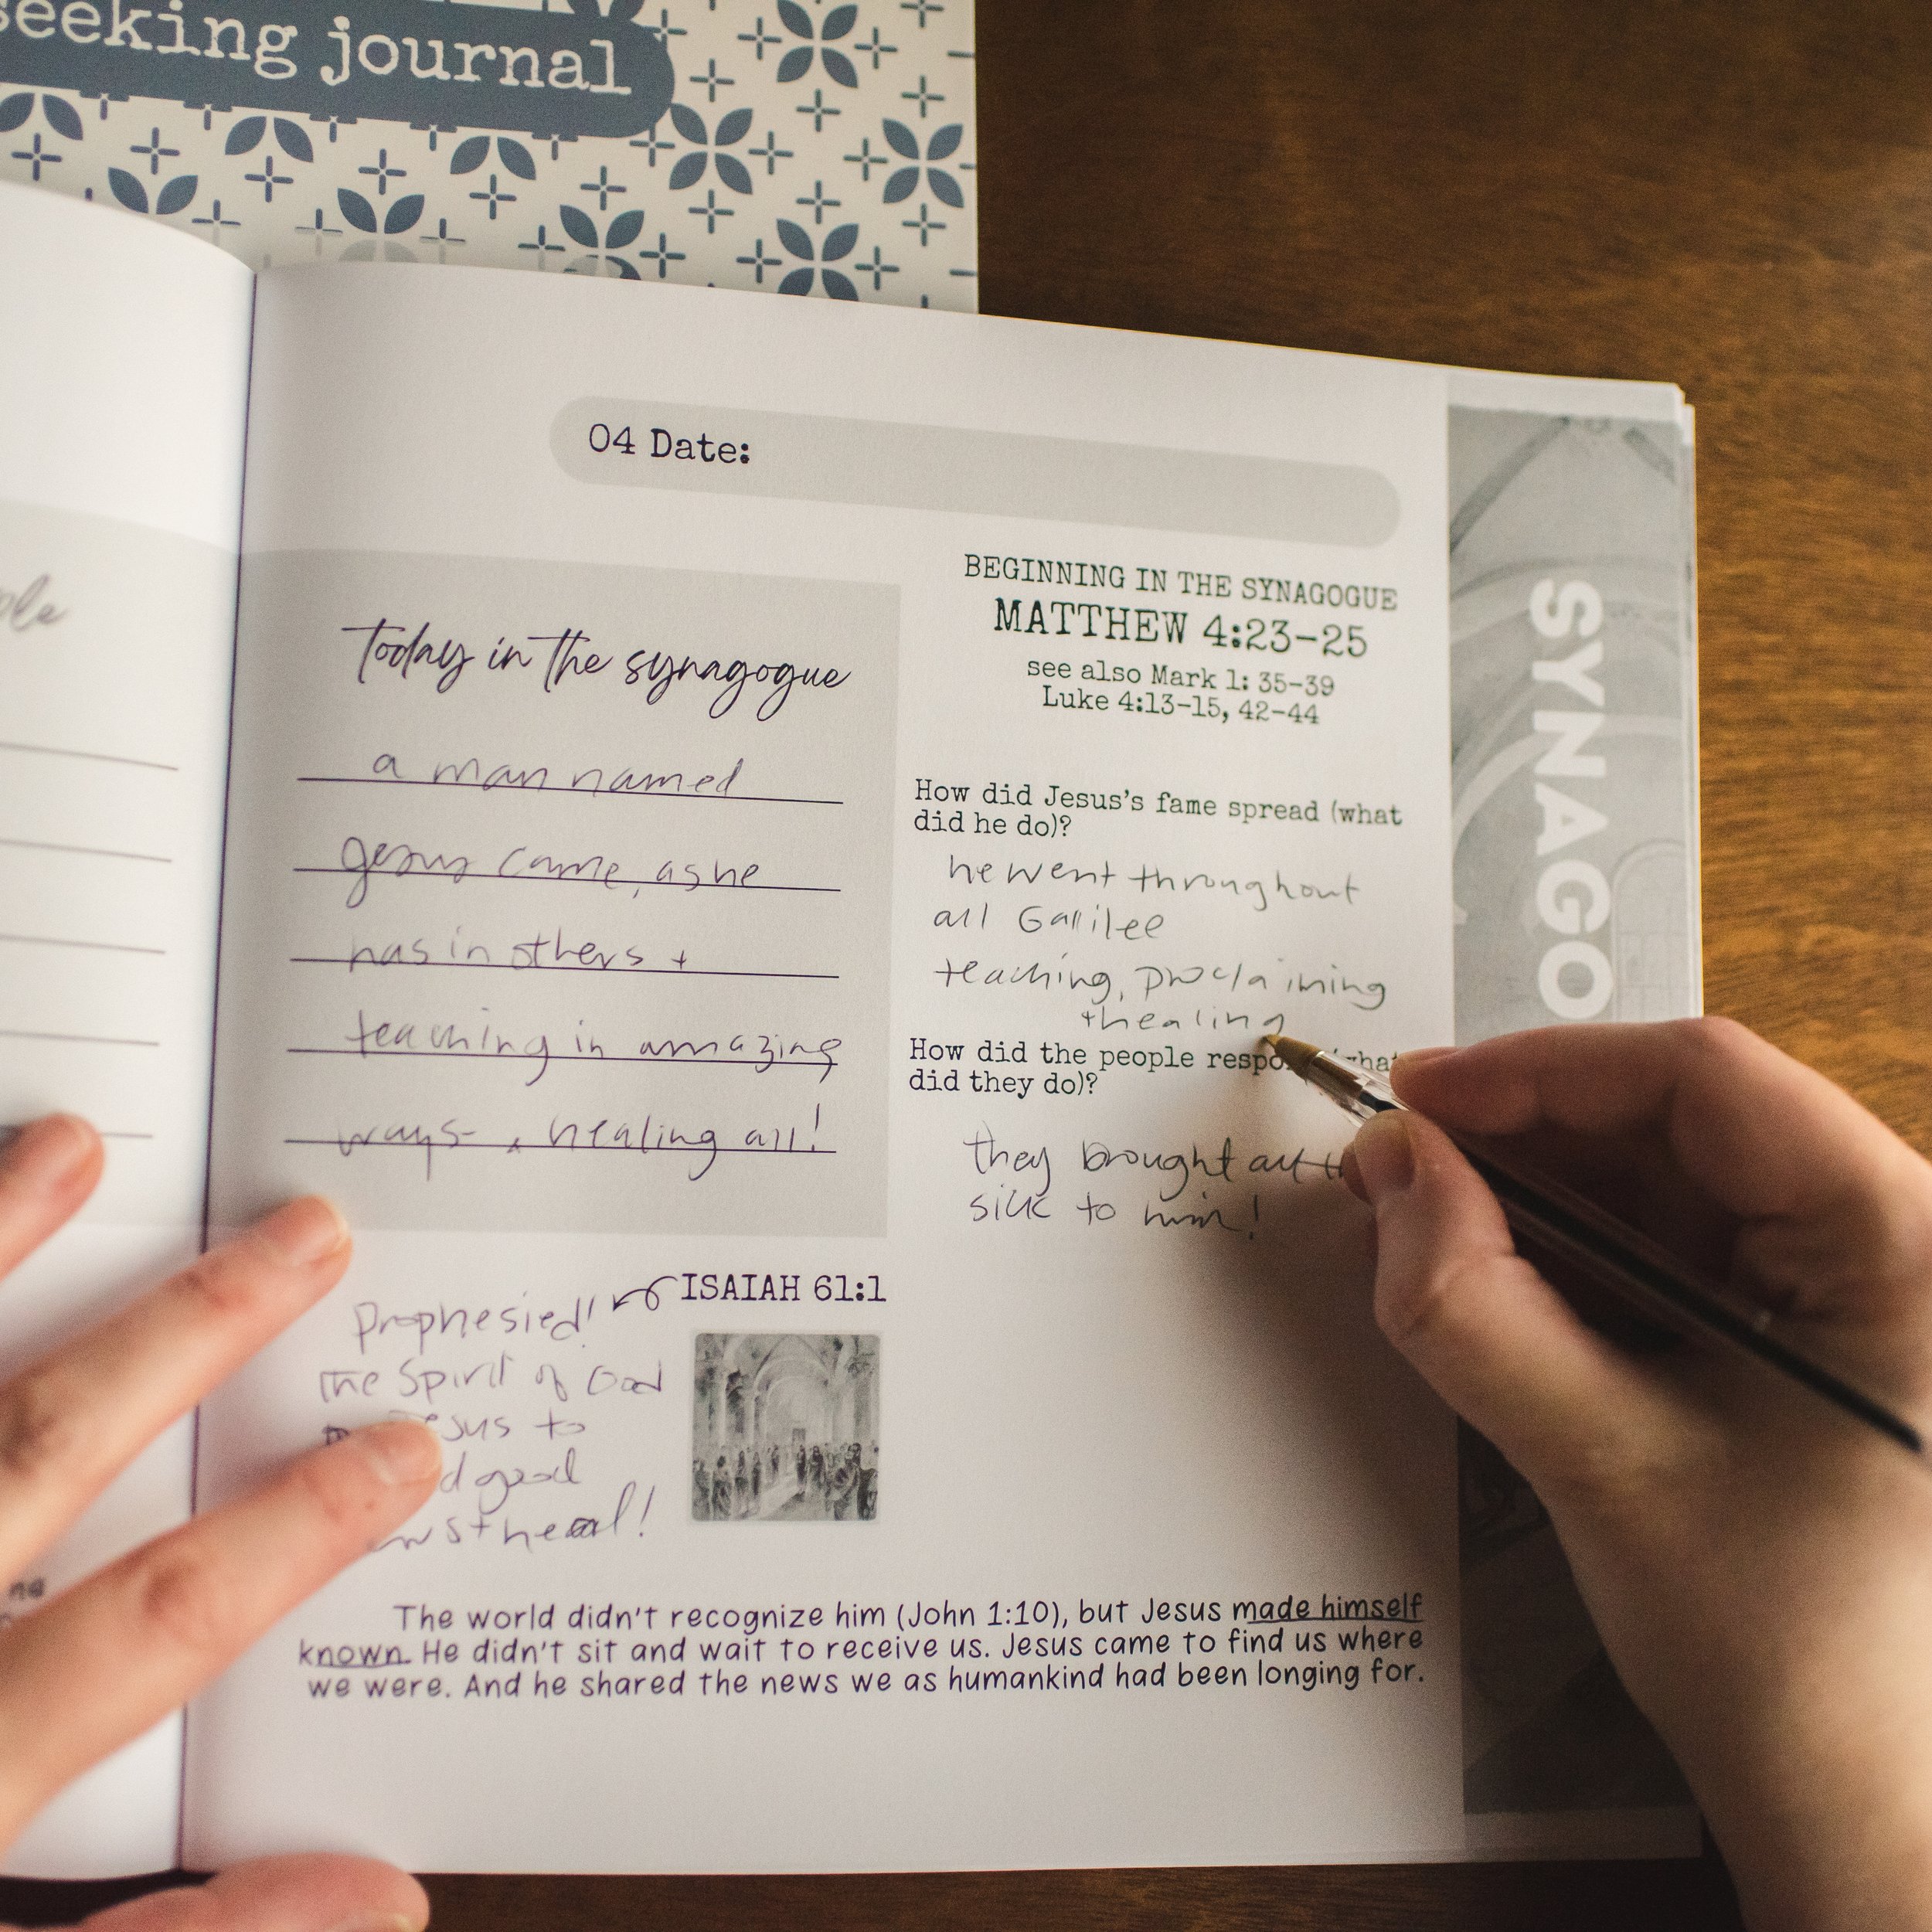 seeking journal
04 Date:
today in the synagogue
a man named
Jesus came, as he
has in others +
teaching in amazing
ways - , healing all!
ISAIAH 61:1
Prophesied!
the Spirit of God
to
good
heal!
BEGINNING IN THE SYNAGOGUE
MATTHEW 4:23-25
see also Mark 1: 35-39
Luke 4:13-15, 42-44
How did Jesus's fame spread (what
did he do)?
he went throughout
all Galilee
teaching, proclaiming
+ healing
How did the people
did they do)?
they brought all
sick to him!
The world didn't recognize him (John 1:10), but Jesus made himself
known. He didn't sit and wait to receive us. Jesus came to find us where
we were. And he shared the news we as humankind had been longing for.
SYNAGO